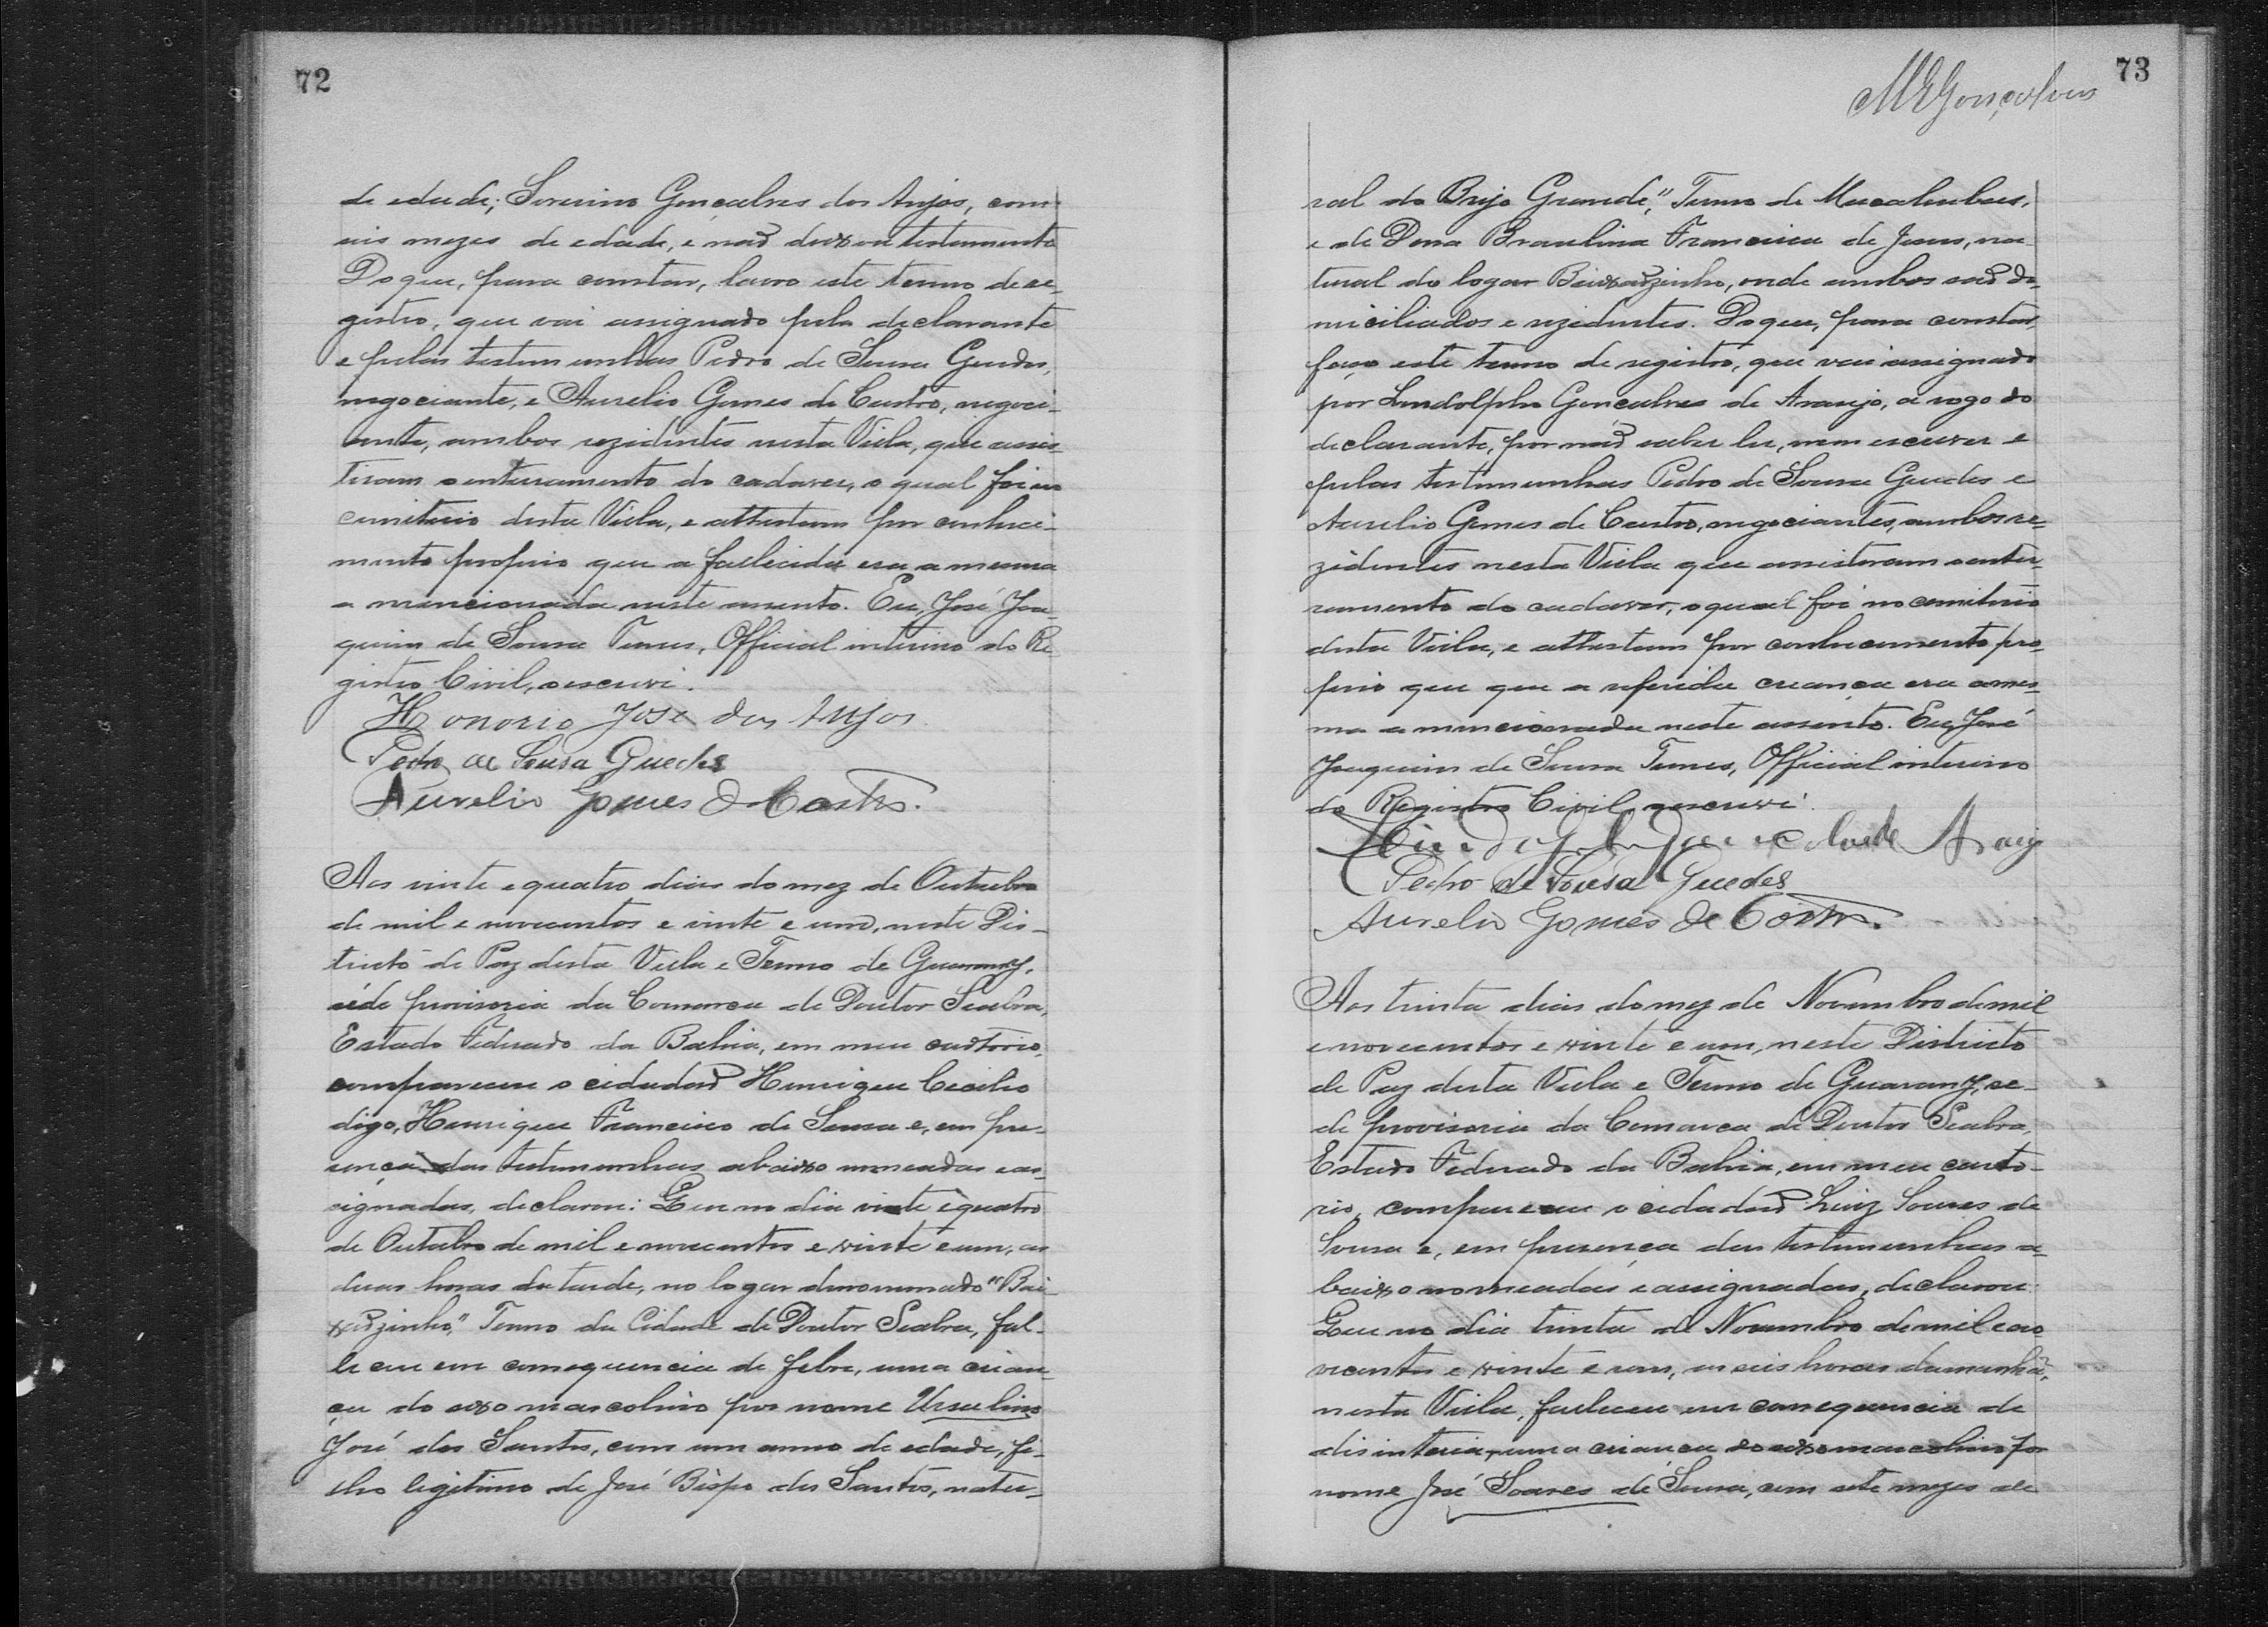 72
de edade; Severino Gonçalves dos Anjos, com
seis mezes de edade, e não deixou testamento
Do que, para constar, lavro este termo de re-
gistro, que vai assignado pelo declarante
e pelas testemunhas Pedro de Sousa Guedes,
negociante, e Aurelio Gomes de Castro, negoci-
ante, ambos rezidentes nesta Villa, que assis-
tiram o enterramento do cadaver, o qual foi no
cemiterio desta Villa, e attestam por conheci-
mento proprio que a fallecida era a mesma
a mencionada neste assento. Eu, José Joa-
quim de Sousa Tunes, Official interino do Re-
gistro Civil, o escrevi.
Honorio José dos Anjos
Pedro de Sousa Guedes
Aurelio Gomes de Castro.
Aos vinte e quatro dias do mez de Outubro
de mil e novecentos e vinte e um, neste Dis-
tricto de Paz desta Villa e Termo de Guarany,
séde provisoria da Comarca de Doutor Seabra,
Estado Federado da Bahia, em meu cartorio,
compareceu o cidadão Henrique Cecilio
digo, Henrique Francisco de Sousa e, em pre-
sença das testemunhas abaixo nomeadas e as-
signadas, declarou: Que no dia vinte e quatro
de Outubro de mil e novecentos e vinte e um, as
duas horas da tarde, no logar denominado "Bai-
xãozinho," Termo da Cidade de Doutor Seabra, fal-
leceu em consequencia de febre, uma crian-
ça do sexo mascolino por nome Ursulino
José dos Santos, com um anno de edade, fi-
lho legitimo de José Bispo dos Santos, natu-
73
MEGonçalves
ral do Brejo Grande," Termo de Macahubas,
e de Dona Braulina Francisca de Jesus, na-
tural do logar Baixãozinho, onde ambos são do-
miciliados e rezidentes. Do que, para constar,
faço este termo de registro, que vai assignado
por Lindolpho Gonçalves de Araujo, a rogo do
declarante, por não saber ler, nem escrever e
pelas testemunhas Pedro de Sousa Guedes e
Aurelio Gomes de Castro, negociantes, ambos re-
zidentes nesta Villa que assistiram o enter-
ramento do cadaver, o qual foi no cemiterio
desta Villa, e attestam por conhecimento pro-
prio que que a referida criança era a mes-
ma a mencionada neste assento. Eu, José
Joaquim de Sousa Tunes, Official interino
do Registro Civil, o escrevi.
Lindolpho Gonçalves de Araujo
Pedro de Sousa Guedes
Aurelio Gomes de Castro.
Aos trinta dias do mez de Novembro de mil
e novecentos e vinte e um, neste Districto
de Paz desta Villa e Termo de Guarany, se-
de provisoria da Comarca de Doutor Seabra,
Estado Federado da Bahia, em meu carto-
rio, compareceu o cidadão Luiz Soares de
Sousa e, em presença das testemunhas a-
baixo nomeadas e assignadas, declarou:
Que no dia trinta de Novembro de mil e no
vecentos e vinte e um, as seis horas da manhã,
nesta Villa, falleceu em consequencia de
disinteria, uma criança do sexo mascolino por
nome José Soares de Sousa, com sete mezes de